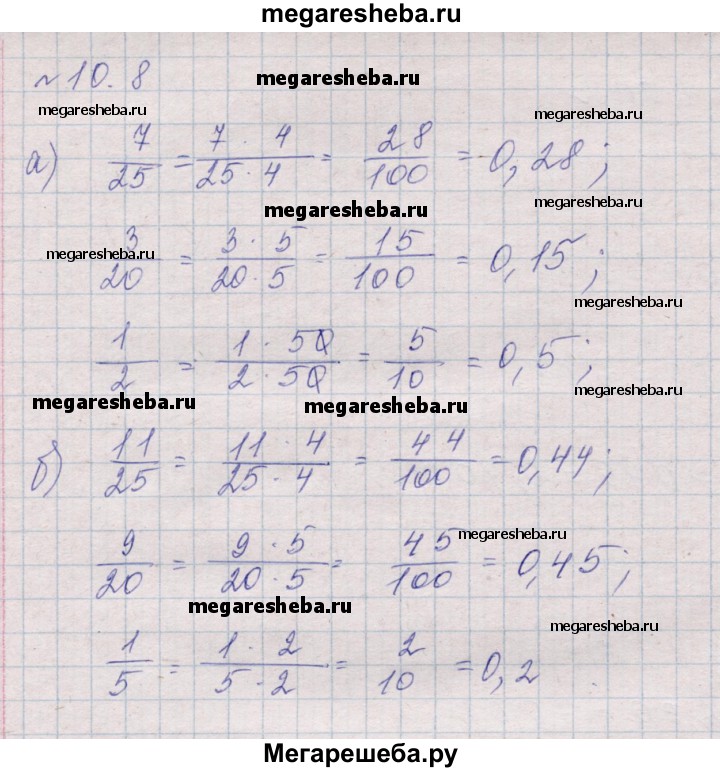 megaresheba.ru
№ 10.8 megaresheba.ru
megaresheba.ru megaresheba.ru
а) 7/25 = 7 · 4/25 · 4 = 28/100 = 0,28;
megaresheba.ru megaresheba.ru
megaresheba.ru
3/20 = 3 · 5/20 · 5 = 15/100 = 0,15;
megaresheba.ru
1/2 = 1 · 5/2 · 5 = 5/10 = 0,5;
megaresheba.ru
megaresheba.ru megaresheba.ru
б) 11/25 = 11 · 4/25 · 4 = 44/100 = 0,44;
megaresheba.ru
9/20 = 9 · 5/20 · 5 = 45/100 = 0,45;
megaresheba.ru
megaresheba.ru
1/5 = 1 · 2/5 · 2 = 2/10 = 0,2
Мегарешеба.ру